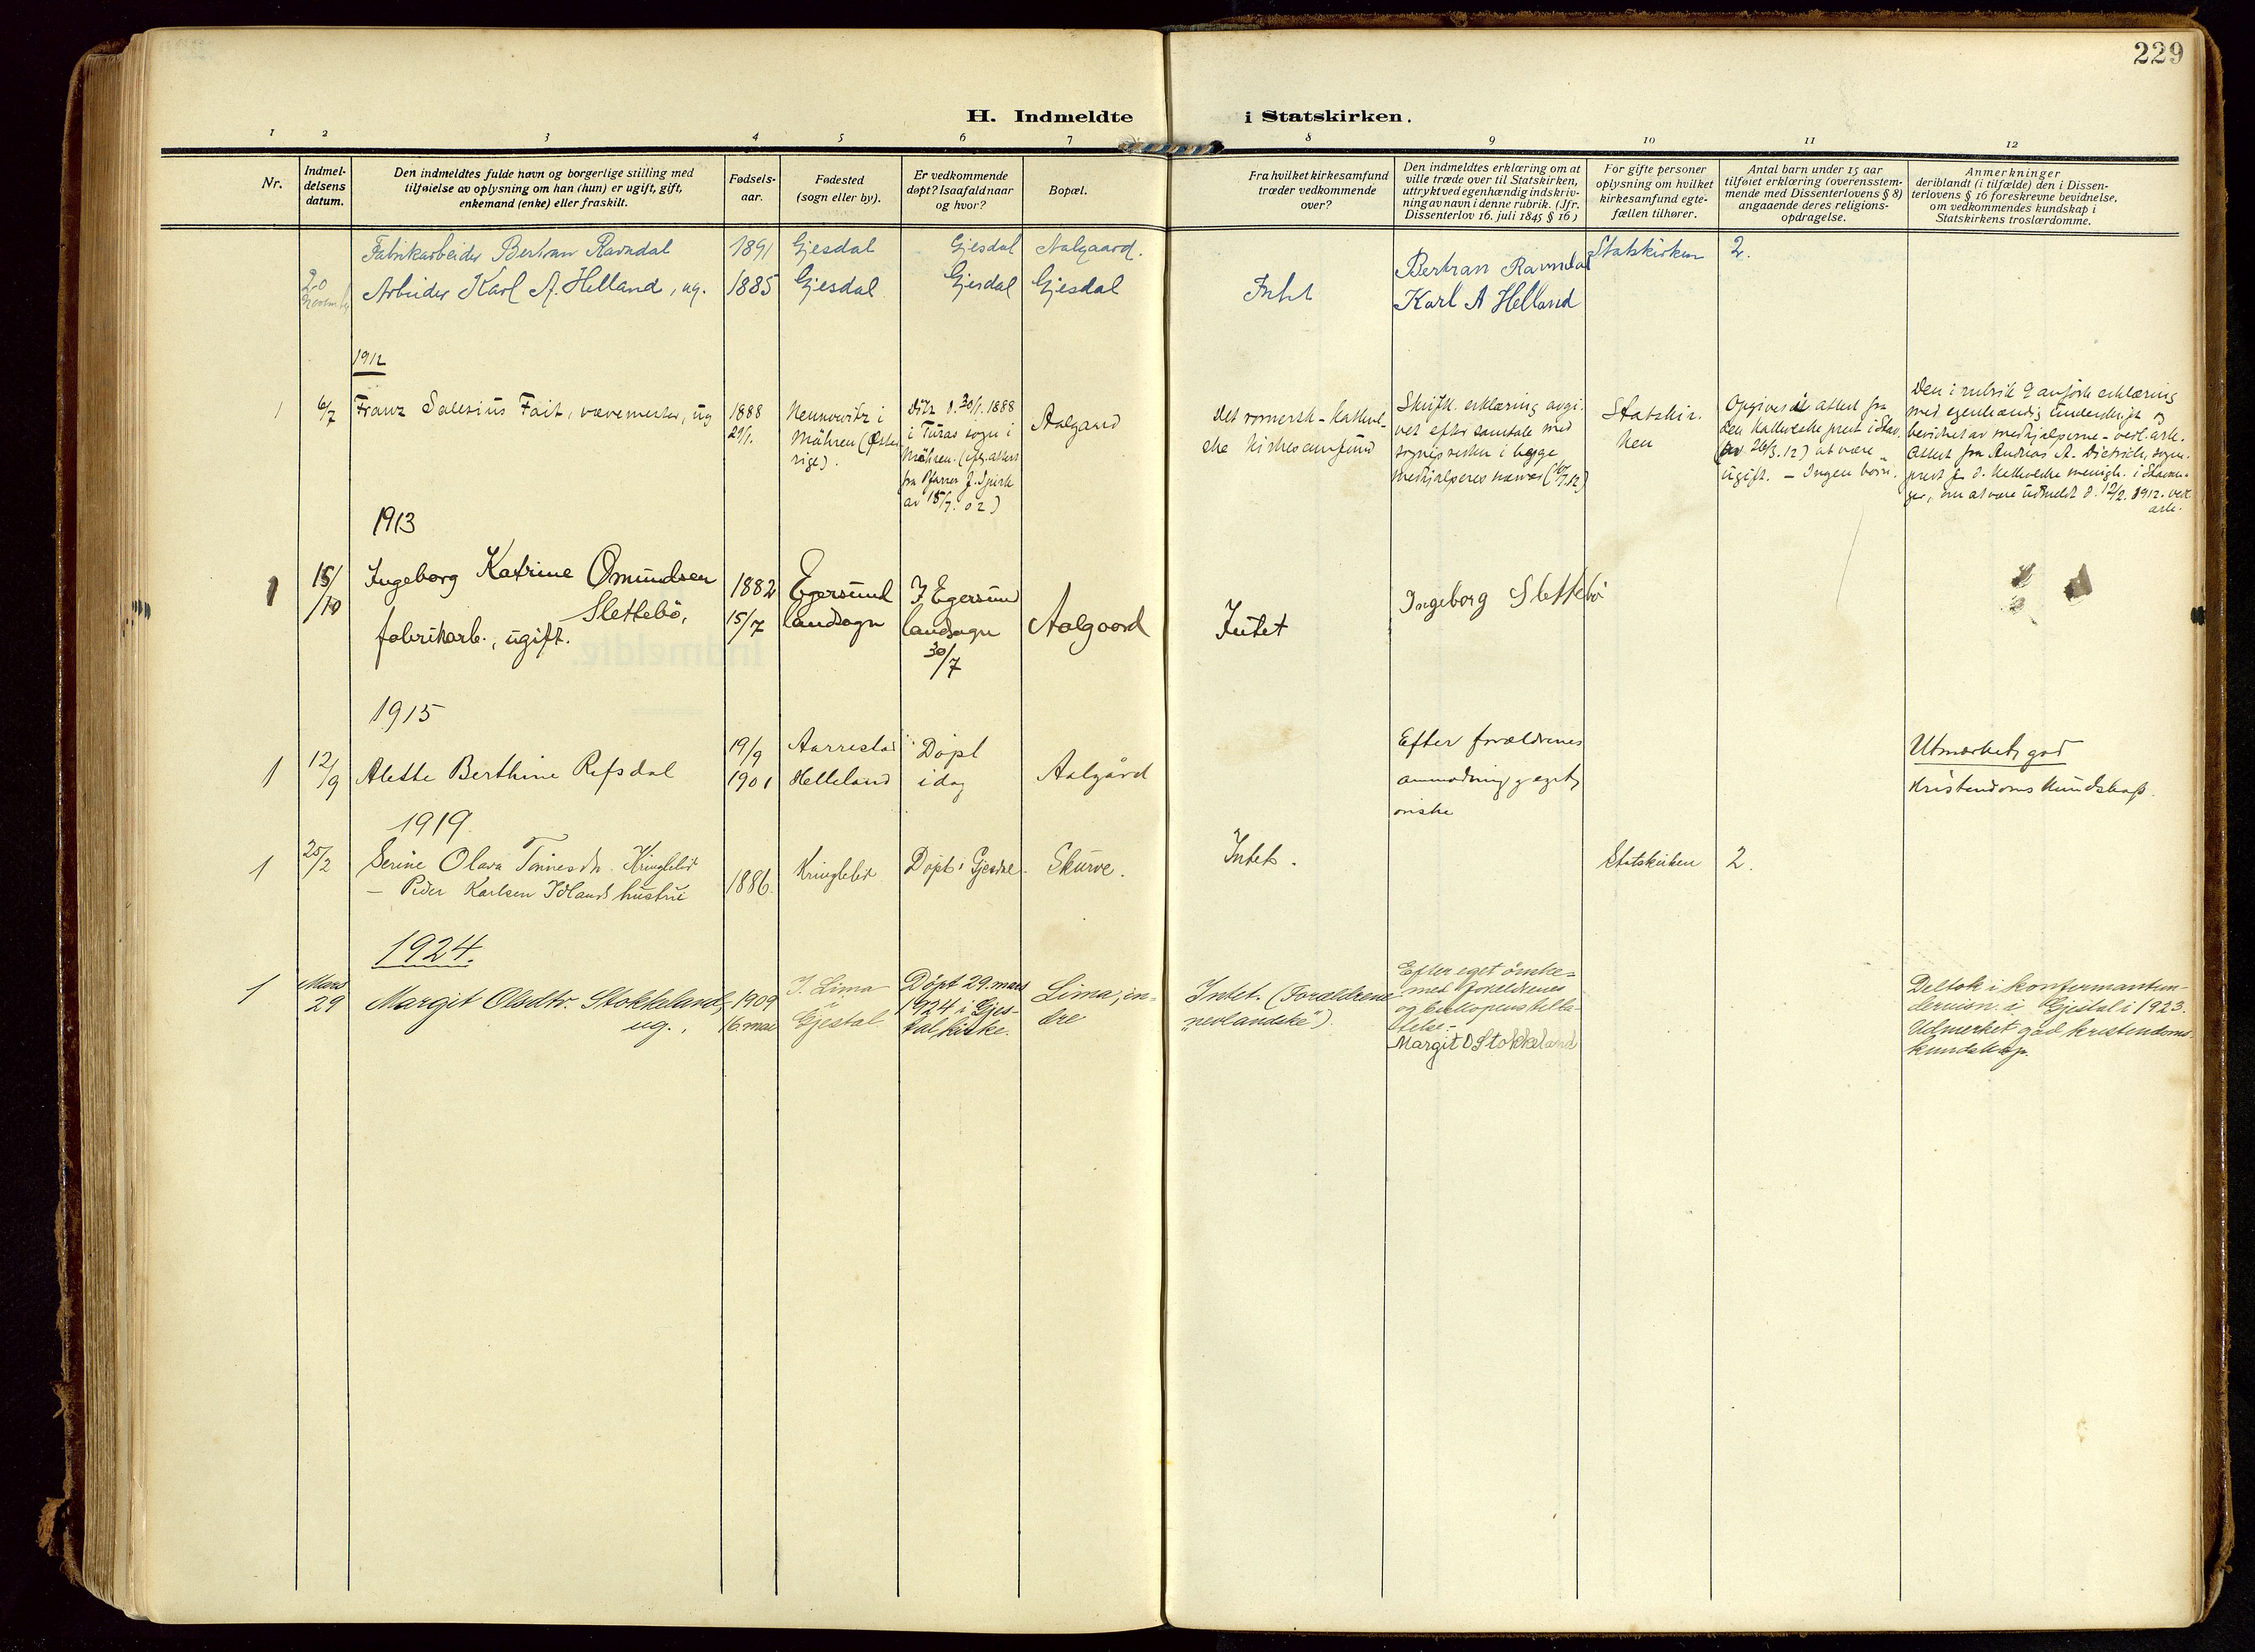 229
H. Indmeldte i Statskirken.
1 2 3 4 5 6 7 8 9 10 11 12
Nr.
Indmel-
delsens
datum.
Den indmeldtes fulde navn og borgerlige stilling med
tilføielse av oplysning om han (hun) er ugift, gift,
enkemand (enke) eller fraskilt.
Fødsels-
aar.
Fødested
(sogn eller by).
Er vedkommende
døpt? Isaafald naar
og hvor?
Bopæl.
Fra hvilket kirkesamfund
træder vedkommende
over?
Den indmeldtes erklæring om at
ville træde over til Statskirken,
uttrykt ved egenhændig indskriv-
ning av navn i denne rubrik. (Jfr.
Dissenterlov 16. juli 1845 § 16)
For gifte personer
oplysning om hvilket
kirkesamfund egte-
fællen tilhører.
Antal barn under 15 aar
tilføiet erklæring (overensstem-
mende med Dissenterlovens § 8)
angaaende deres religions-
opdragelse.
Anmerkninger
deriblandt (i tilfælde) den i Dissen-
terlovens § 16 foreskrevne bevidnelse,
om vedkommendes kundskap i
Statskirkens troslærdomme.
Fabrikarbeider Bertran Ravndal
1891
Gjesdal
Gjesdal
Aalgaard.
Bertran Ravndal
Statskirken
2.
20
Arbeider Karl A. Helland, ug.
1885
Gjesdal
Gjesdal
Gjesdal
Intet
Karl A Helland
1912
1
6/7
Franz Salesius Fait, vævemester, ug
1888
29/1.
Nennowitz i
Mähren (Øster
rige).
Ditz d. 30/1. 1888
i Turas sogn i
Mähren. (iflg. attest
fra Pfarrer J.
av 15/7. 02)
Aalgaard
Det romersk-kathol-
ske kirkesamfund
Skriftl. erklæring avgi-
vet efter samtale med
sognepresten i begge
medhjælperes nærvær (6/7.12)
Statskir-
ken
Opgives i attest fra
den katholske prest i Stav.
(av 26/3.12) at være
ugift. – Ingen børn.
Den i rubrik 9 anførte erklæring
med egenhændig underskrift og
bevidnet av medhjælperne – vedl. ark.
Attest fra Andreas A. Dietrich, sogne-
prest f. d. katholske menigh. i Stavan-
ger, om at være udmeldt d. 12/2. 1912. ved
ark.
1913
1
15/
/10
Ingeborg Katrine Omundsen
Slettebö,
fabrikarb., ugift.
1882
15/7
Egersund
landsogn
I Egersund
landsogn
30/7
Aalgaard
Intet
Ingeborg Slettebö
1915
1
12/9
Alette Berthine Refsdal
19/9
1901
Aarrestad
Helleland
Döpt
idag
Aalgård
Efter forældrenes
anmodning og eget
ønske
Utmerket god
Kristendoms Kundskap.
1919
1
25/2
Serine Olava Tønnesdr. Kringleli
– Peder Karlsen Idlands hustru
1886.
Kringleli
Døpt i Gjesdal.
Skurve.
Intet.
Statskirken
2.
1924.
1
Mars
29
Margit Olsdtr. Stokkeland,
ug.,
1909
16. mai
I. Lima
i
Gjestal
Döpt 29. mars
1924 i Gjes-
tal kirke.
Lima, in-
dre
Intet. (Foreldrene
"nevlandske").
Efter eget önske
med foreldrenes
og biskopens tilla-
telse.
Margit O Stokkeland
Deltok i konfirmantun-
dervisn. i Gjestal i 1923.
Udmerket god kristendoms-
kundskap.